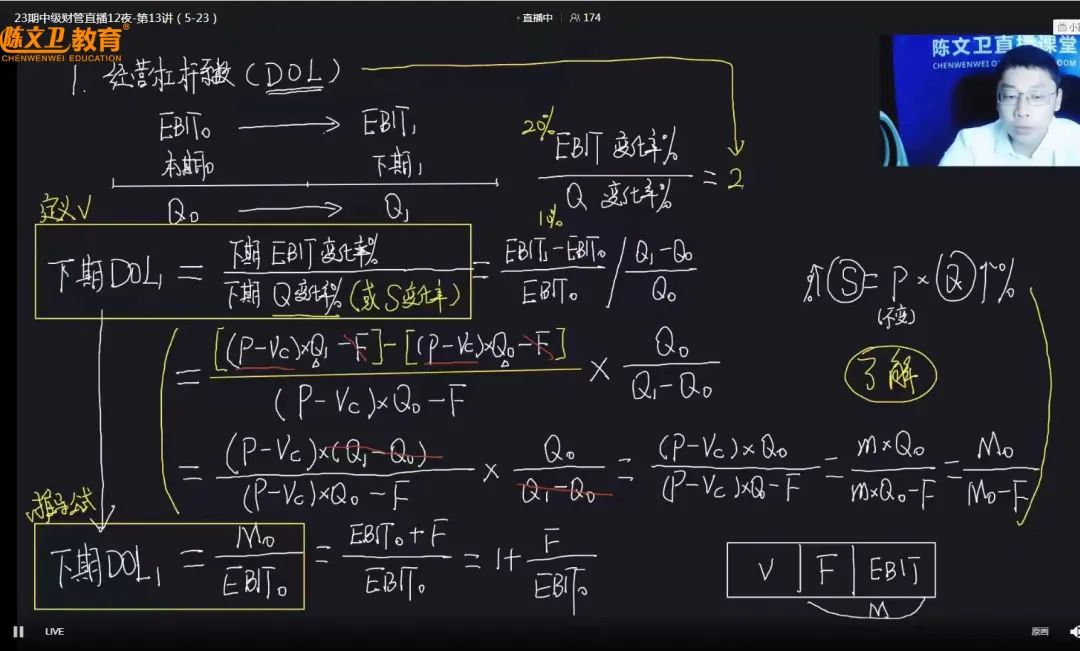 23期中级财管直播12夜-第13讲（5-23）
直播中 174
陈文卫教育®
CHENWENWEI EDUCATION
陈文卫直播课堂
1. 经营杠杆系数（DOL）
EBIT₀ → EBIT₁
本期₀ 下期₁
Q₀ → Q₁
20% EBIT变化率% / Q变化率% = 2
10%
定义√
下期DOL₁ = 下期EBIT变化率% / 下期Q变化率%（或S变化率） = (EBIT₁-EBIT₀)/EBIT₀ / (Q₁-Q₀)/Q₀
↑(S) = P × (Q)↑%
(不变)
了解
= [(P-Vc)×Q₁-F]-[(P-Vc)×Q₀-F] / (P-Vc)×Q₀-F × Q₀/(Q₁-Q₀)
= (P-Vc)×(Q₁-Q₀) / (P-Vc)×Q₀-F × Q₀/(Q₁-Q₀) = (P-Vc)×Q₀ / (P-Vc)×Q₀-F = m×Q₀ / m×Q₀-F = M₀ / M₀-F
推导公式
下期DOL₁ = M₀/EBIT₀ = (EBIT₀+F)/EBIT₀ = 1+F/EBIT₀
V F EBIT
M
LIVE
原画